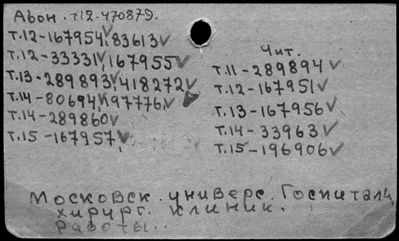 Абон. т12-470879.
т.12-167954√,83613√
т.12-33331√,167955√
т.13-289893√,418272√
т.14-80694√,97776√
т.14-289860√
т.15-167957√
Чит.
т.11-289894√
т.12-167951√
т.13-167956√
т.14-33963√
т.15-196906√
Московск. универс. Госпитальн.
хирург. клиник.
Работы..